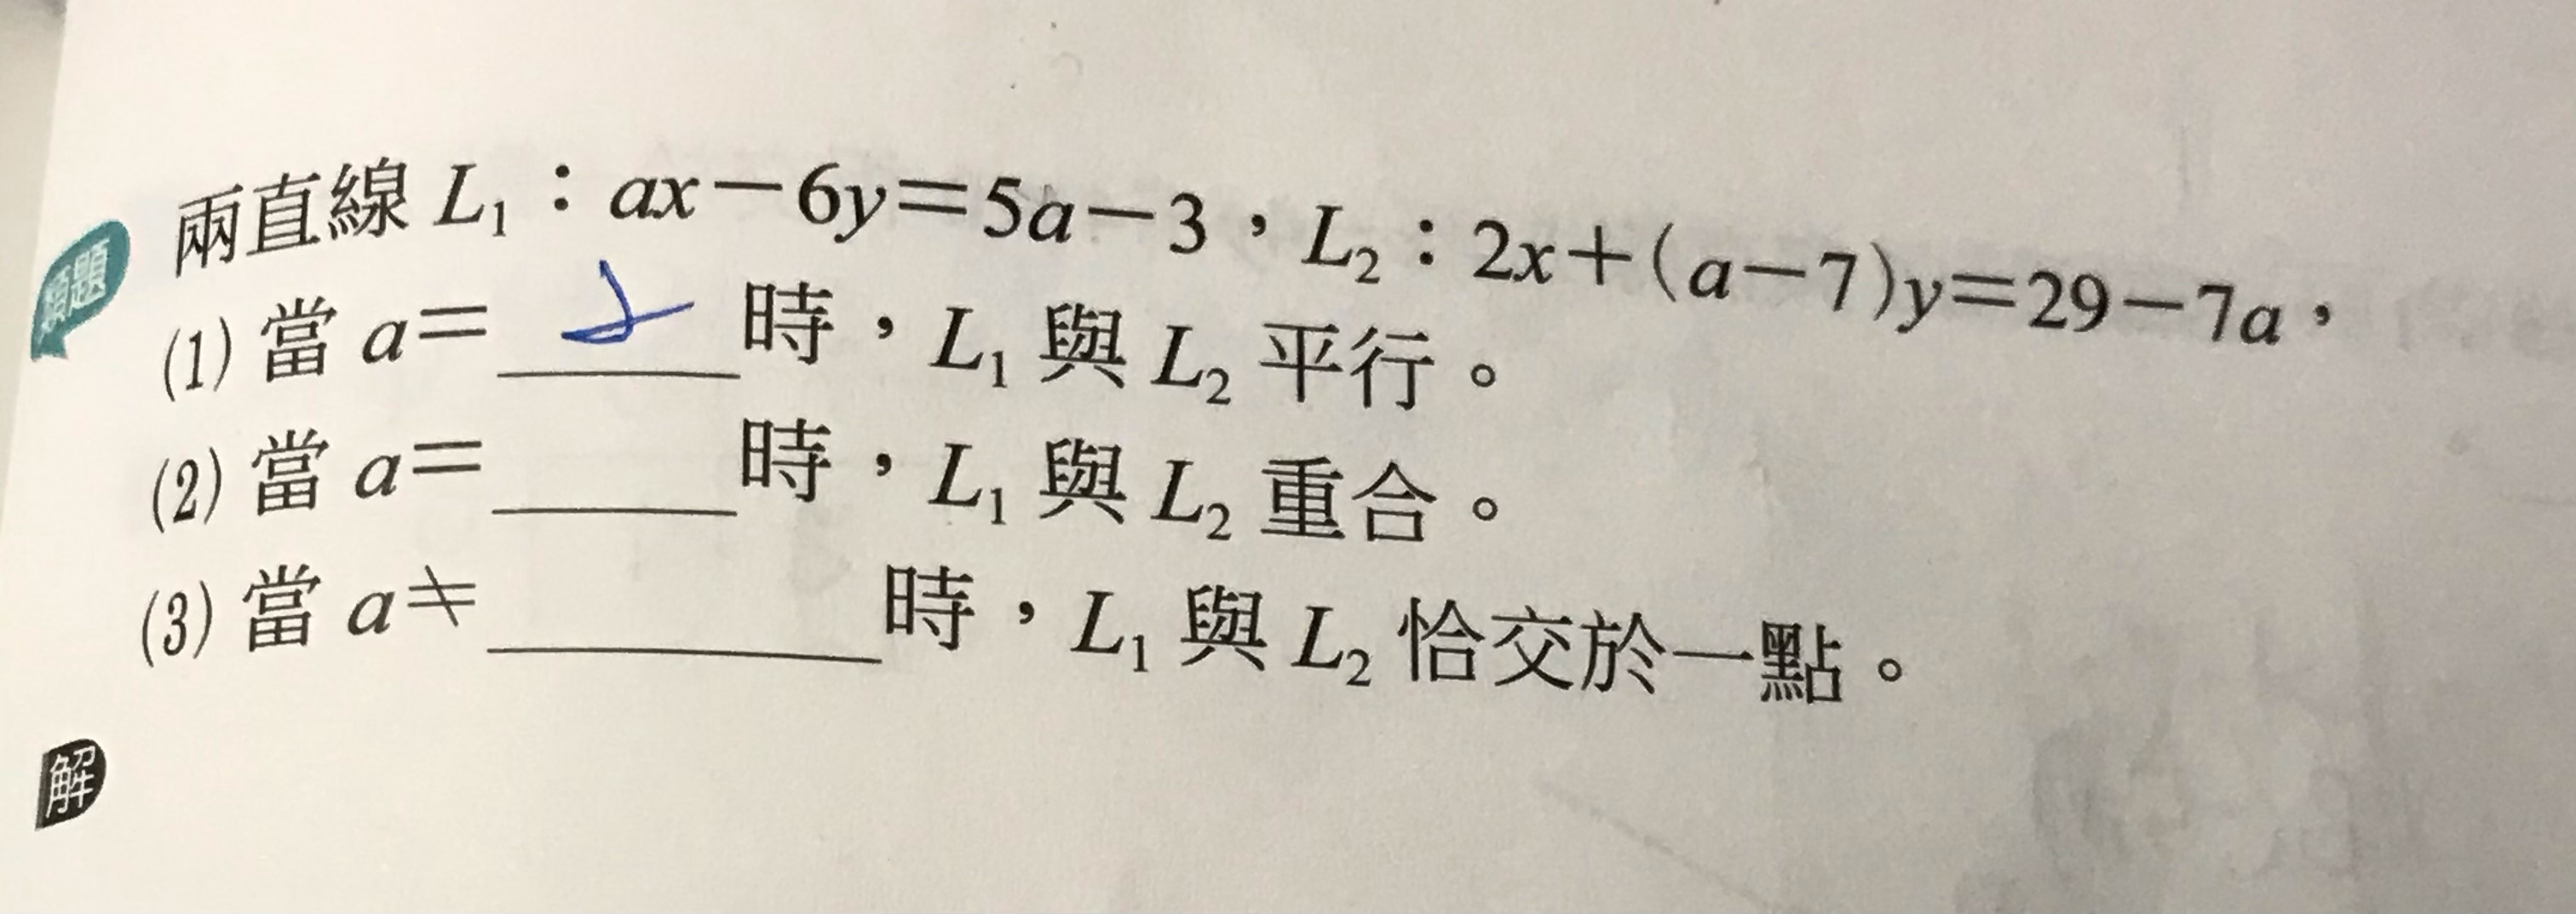 類題
兩直線 L₁：ax－6y＝5a－3，L₂：2x＋(a－7)y＝29－7a，
(1) 當 a＝ 2 時，L₁ 與 L₂ 平行。
(2) 當 a＝____時，L₁ 與 L₂ 重合。
(3) 當 a≠________時，L₁ 與 L₂ 恰交於一點。
解